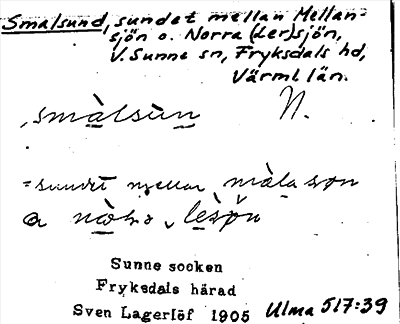 Smalsund, sundet mellan Mellan-
sjön o. Norra (Ler)sjön,
V. Sunne sn, Fryksdals hd,
Värml. län.
smàlsùn N.
=sundet mellan màla
Sunne socken
Fryksdals härad
Sven Lagerlöf 1905 Ulma 517:39